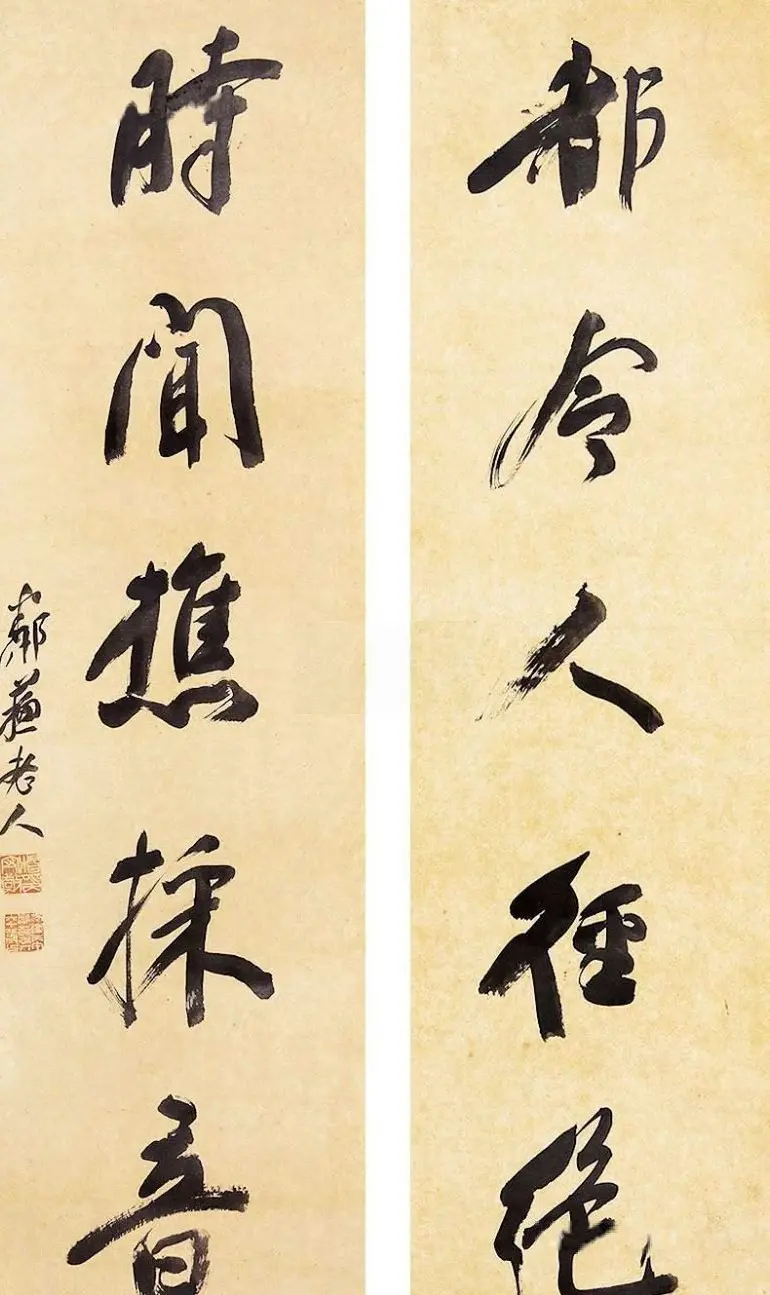 都令人徑絕
時聞樵採音
鄰蘇老人